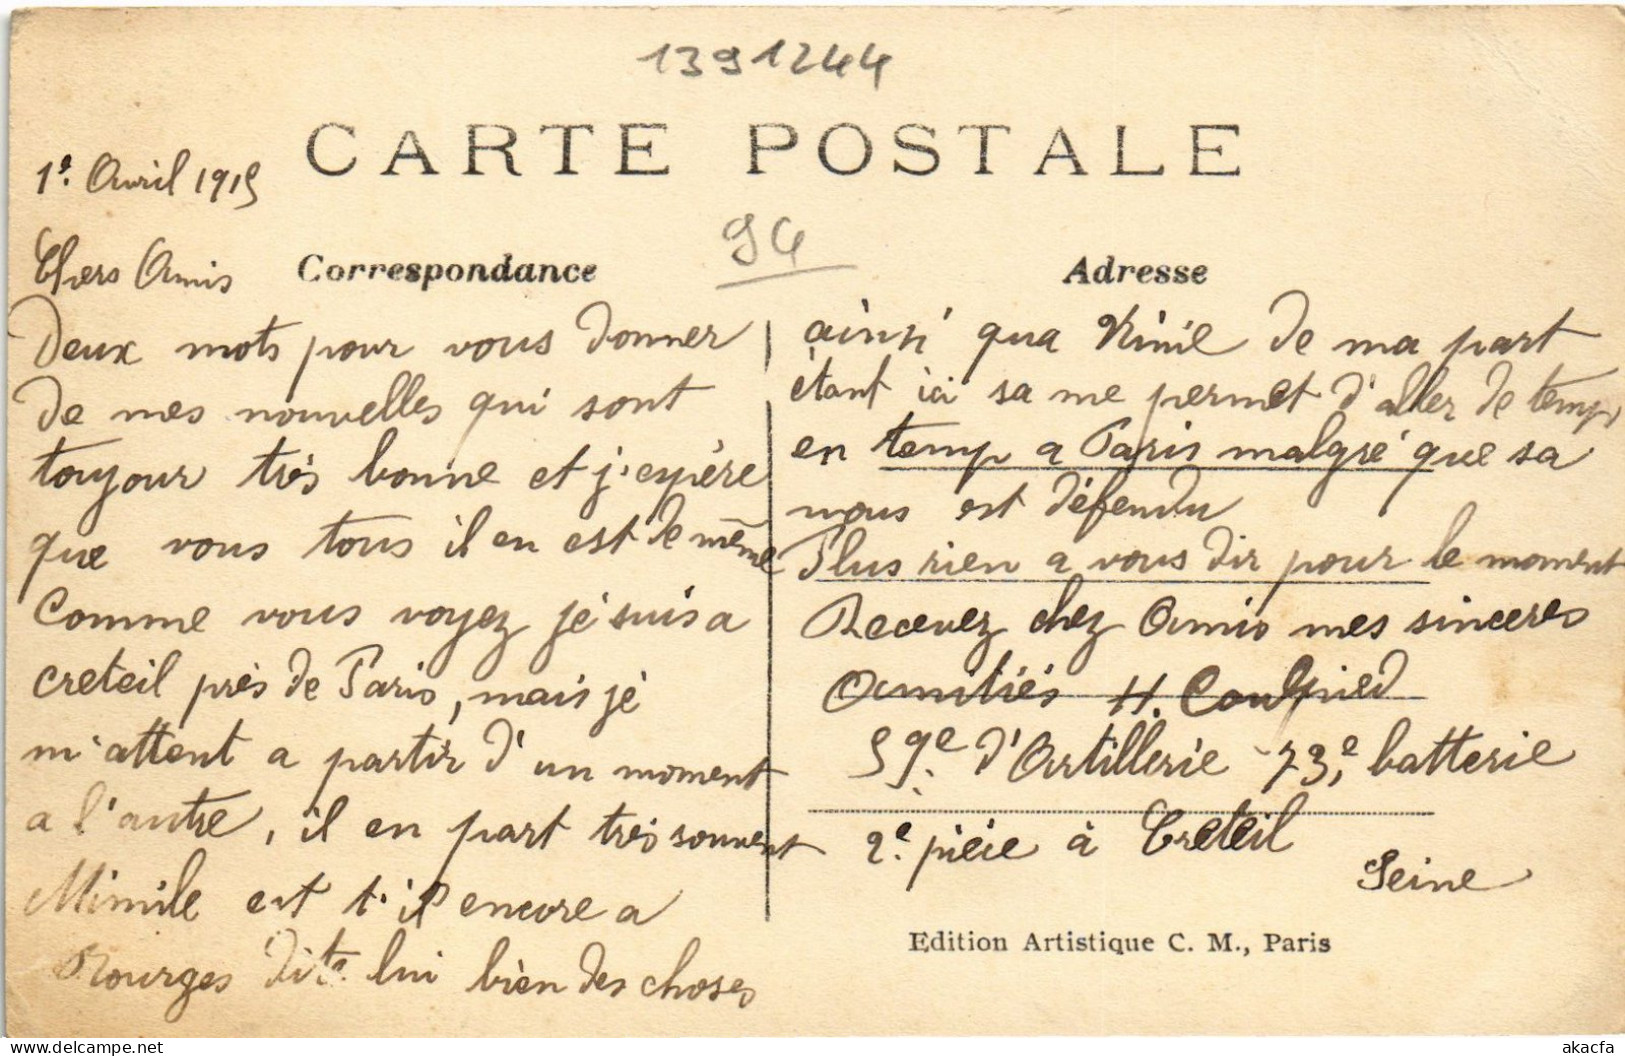 1391244
CARTE POSTALE
1e. Avril 1915
94
Chers Amis
Correspondance
Deux mots pour vous donner
de mes nouvelles qui sont
toujour très bonne et j'espère
que vous tous il en est de même
Comme vous voyez jé suis a
creteil près de Paris, mais jé
m'attent a partir d'un moment
a l'autre, il en part très souvent
Mimile est t'il encore a
Bourges dite lui bien des choses
Adresse
ainsi qua de ma part
étant ici sa me permet d'aller de temp
en temp a Paris malgré que sa
nous est défendu
Plus rien a vous dir pour le moment
Recevez chez Amis mes sinceres
Amitiés H. Coulpied
59e. d'Artillerie 73e batterie
2e. pièce à Creteil
Seine
Edition Artistique C. M., Paris
akacfa